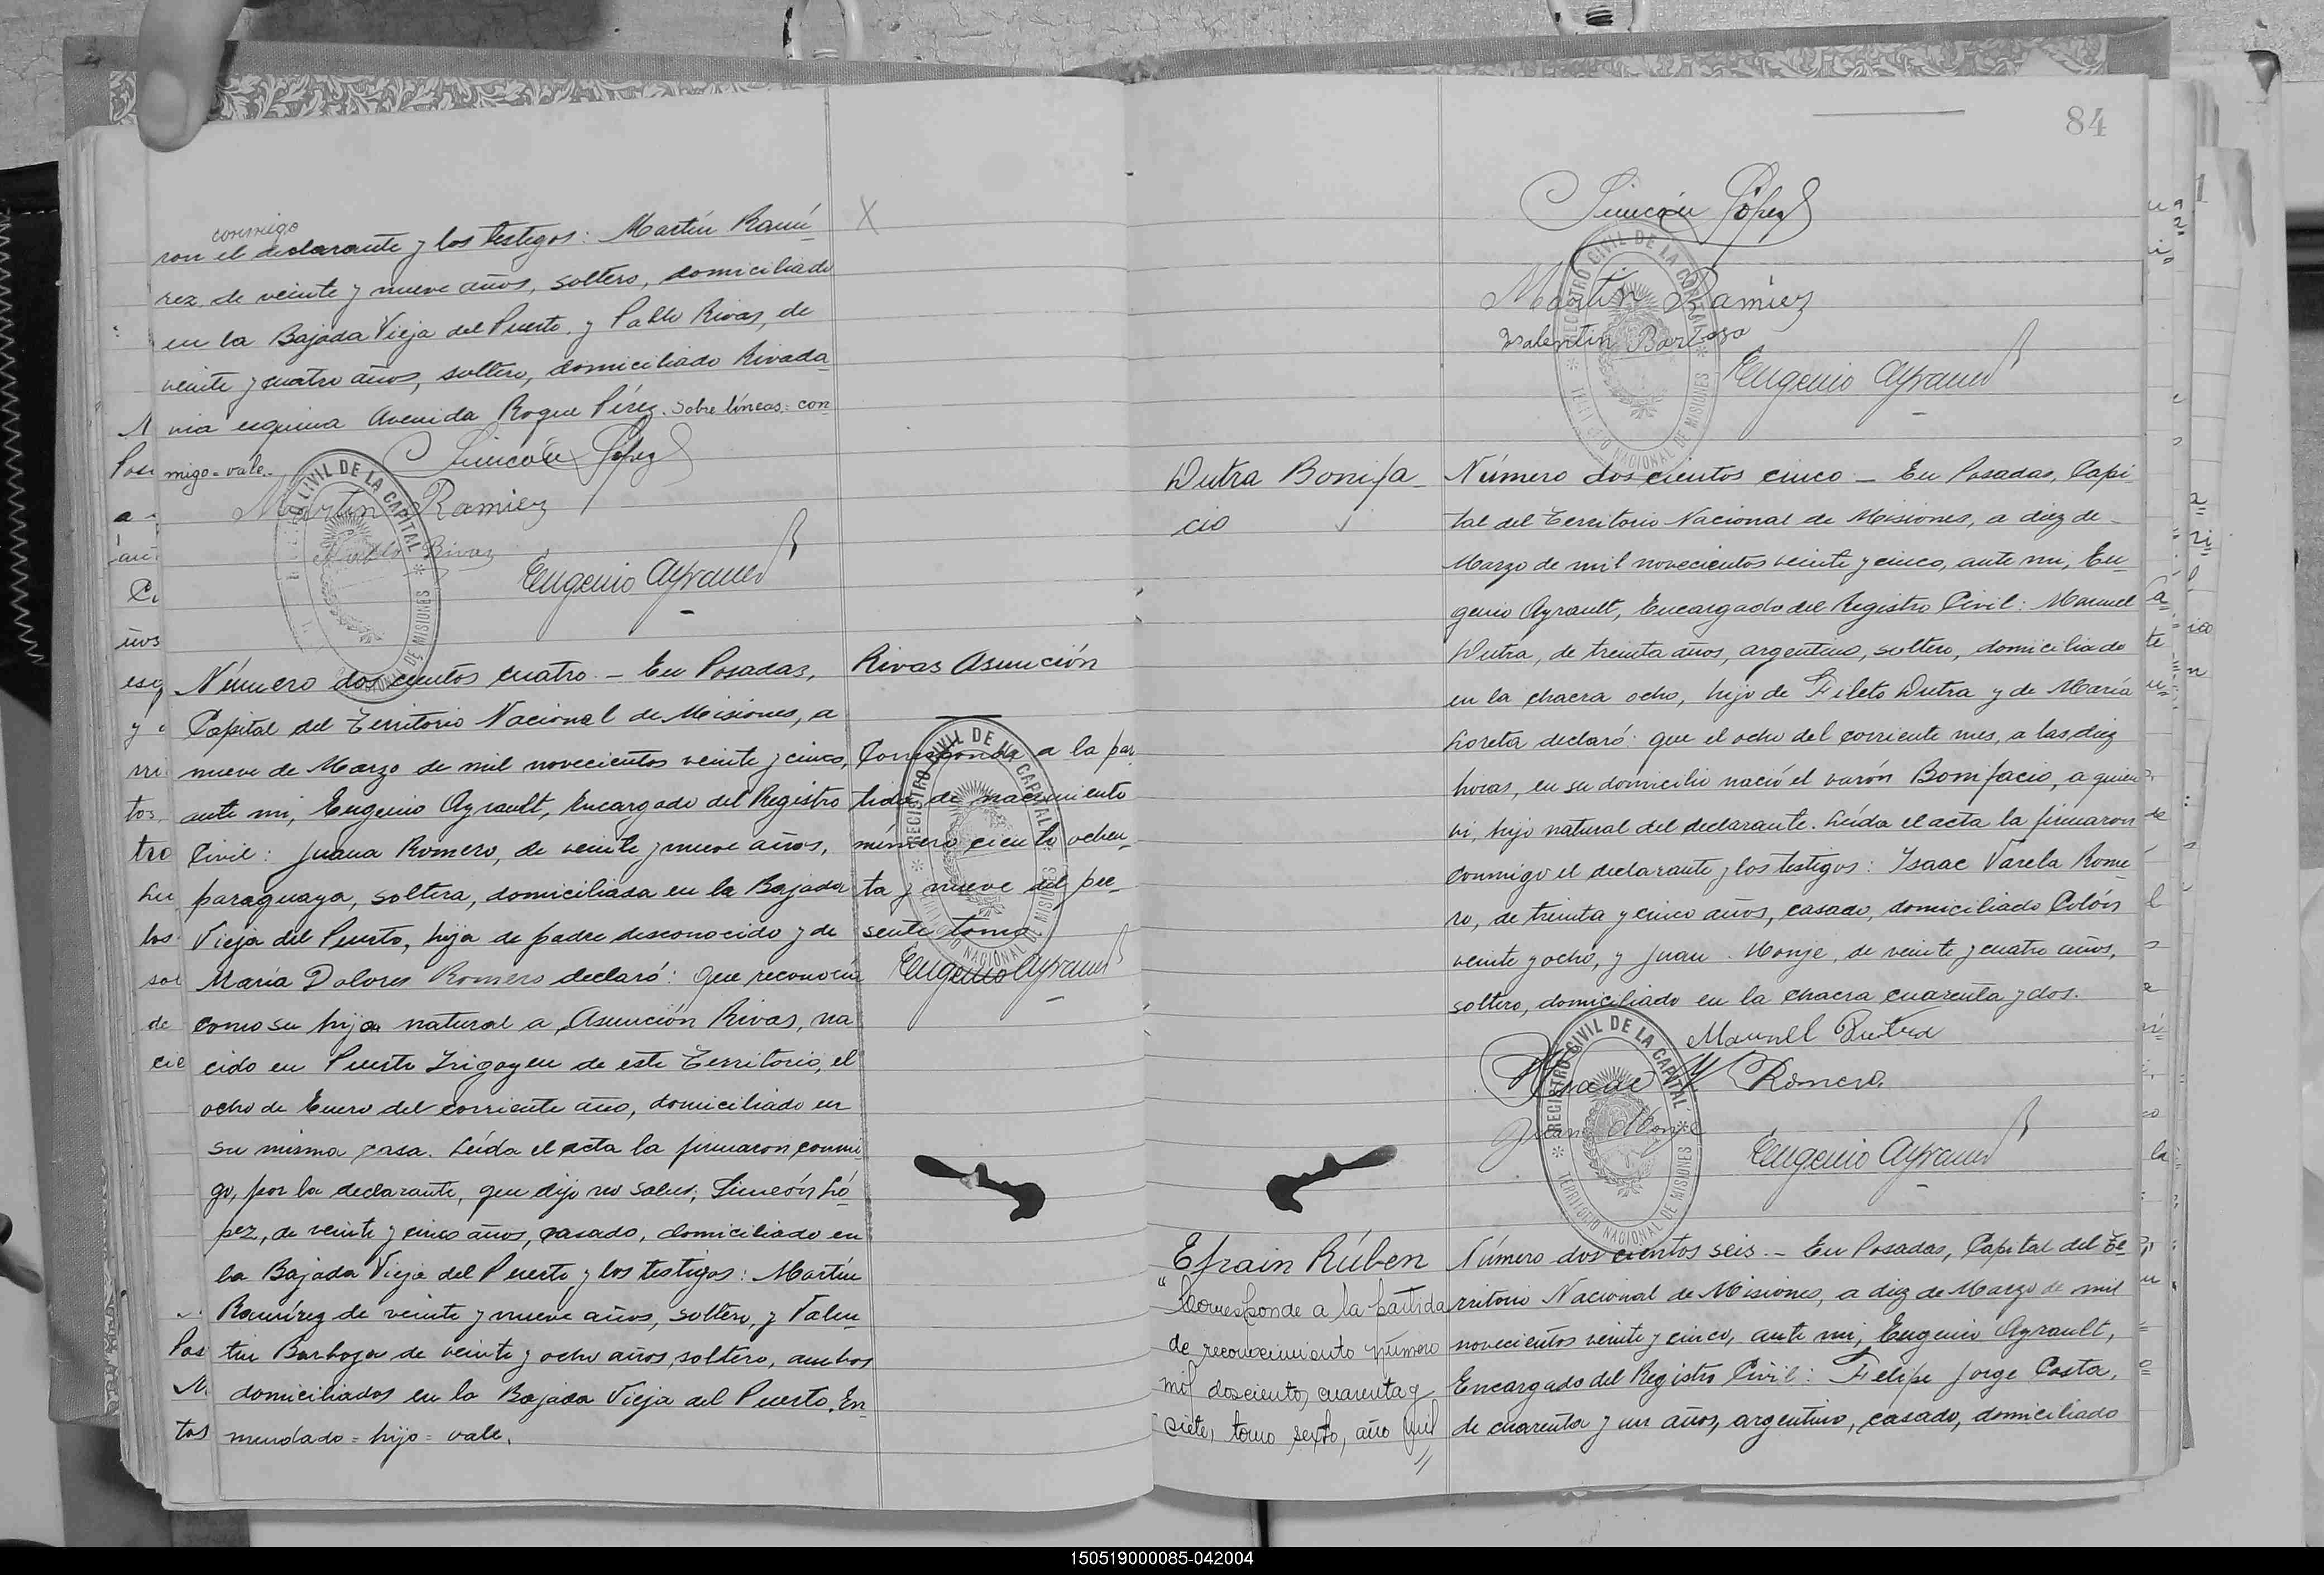 conmigo
ron el declarante y los testigos: Martín Ramí-
rez, de veinte y nueve años, soltero, domiciliado
en la Bajada Vieja del Puerto, y Pablo Rivas, de
veinte y cuatro años, soltero, domiciliado Rivada-
via esquina Avenida Roque Pérez. Sobre líneas: con-
migo = vale.-
Simeón López
Martín Ramirez
Pablo Rivas
Eugenio Ayrault
Número dos cientos cuatro. - En Posadas,
Capital del Territorio Nacional de Misiones, a
nueve de Marzo de mil novecientos veinte y cinco,
ante mi, Eugenio Ayrault, Encargado del Registro
Civil: Juana Romero, de veinte y nueve años,
paraguaya, soltera, domiciliada en la Bajada
Vieja del Puerto, hija de padre desconocido y de
María Dolores Romero declaró: Que reconocía
como su hijo natural a Asunción Rivas, na-
cido en Puerto Irigoyen de este Territorio, el
ocho de Enero del corriente año, domiciliado en
su misma casa. Leída el acta la firmaron conmi-
go, por la declarante, que dijo no saber, Simeón Ló-
pez, de veinte y cinco años, casado, domiciliado en
la Bajada Vieja del Puerto y los testigos: Martín
Ramírez de veinte y nueve años, soltero, y Valen-
tín Barboza de veinte y ocho años, soltero, ambos
domiciliados en la Bajada Vieja del Puerto. En-
mendado = hijo = vale.
X
Rivas Asunción
Corresponde a la par-
tida de nacimiento
número ciento ochen-
ta y nueve del pre-
sente tomo
Eugenio Ayrault
REGISTRO CIVIL DE LA CAPITAL
TERRITORIO NACIONAL DE MISIONES
84
Simeón López
Martín Ramirez
Valentin Barboza
Eugenio Ayrault
Dutra Bonifa-
cio
Número dos cientos cinco - En Posadas, Capi-
tal del Territorio Nacional de Misiones, a diez de
Marzo de mil novecientos veinte y cinco, ante mi, Eu-
genio Ayrault, Encargado del Registro Civil: Manuel
Dutra, de treinta años, argentino, soltero, domiciliado
en la chacra ocho, hijo de Fileto Dutra y de María
Loreta declaró: que el ocho del corriente mes, a las diez
horas, en su domicilio nació el varón Bonifacio, a quien
vi, hijo natural del declarante. Leída el acta la firmaron
conmigo el declarante y los testigos: Isaac Varela Rome-
ro, de treinta y cinco años, casado, domiciliado Colón
veinte y ocho, y Juan Monje, de veinte y cuatro años,
soltero, domiciliado en la chacra cuarenta y dos.
Manuel Dutra
Isaac V Romero
Juan Monje
Eugenio Ayrault
REGISTRO CIVIL DE LA CAPITAL
TERRITORIO NACIONAL DE MISIONES
Efrain Rúben
"Corresponde a la partida
de reconocimiento número
mil doscientos cuarenta y
siete, tomo sexto, año mil
Número dos cientos seis. - En Posadas, Capital del Te-
rritorio Nacional de Misiones, a diez de Marzo de mil
novecientos veinte y cinco, ante mi, Eugenio Ayrault,
Encargado del Registro Civil: Felipe Jorge Costa,
de cuarenta y un años, argentino, casado, domiciliado
150519000085-042004